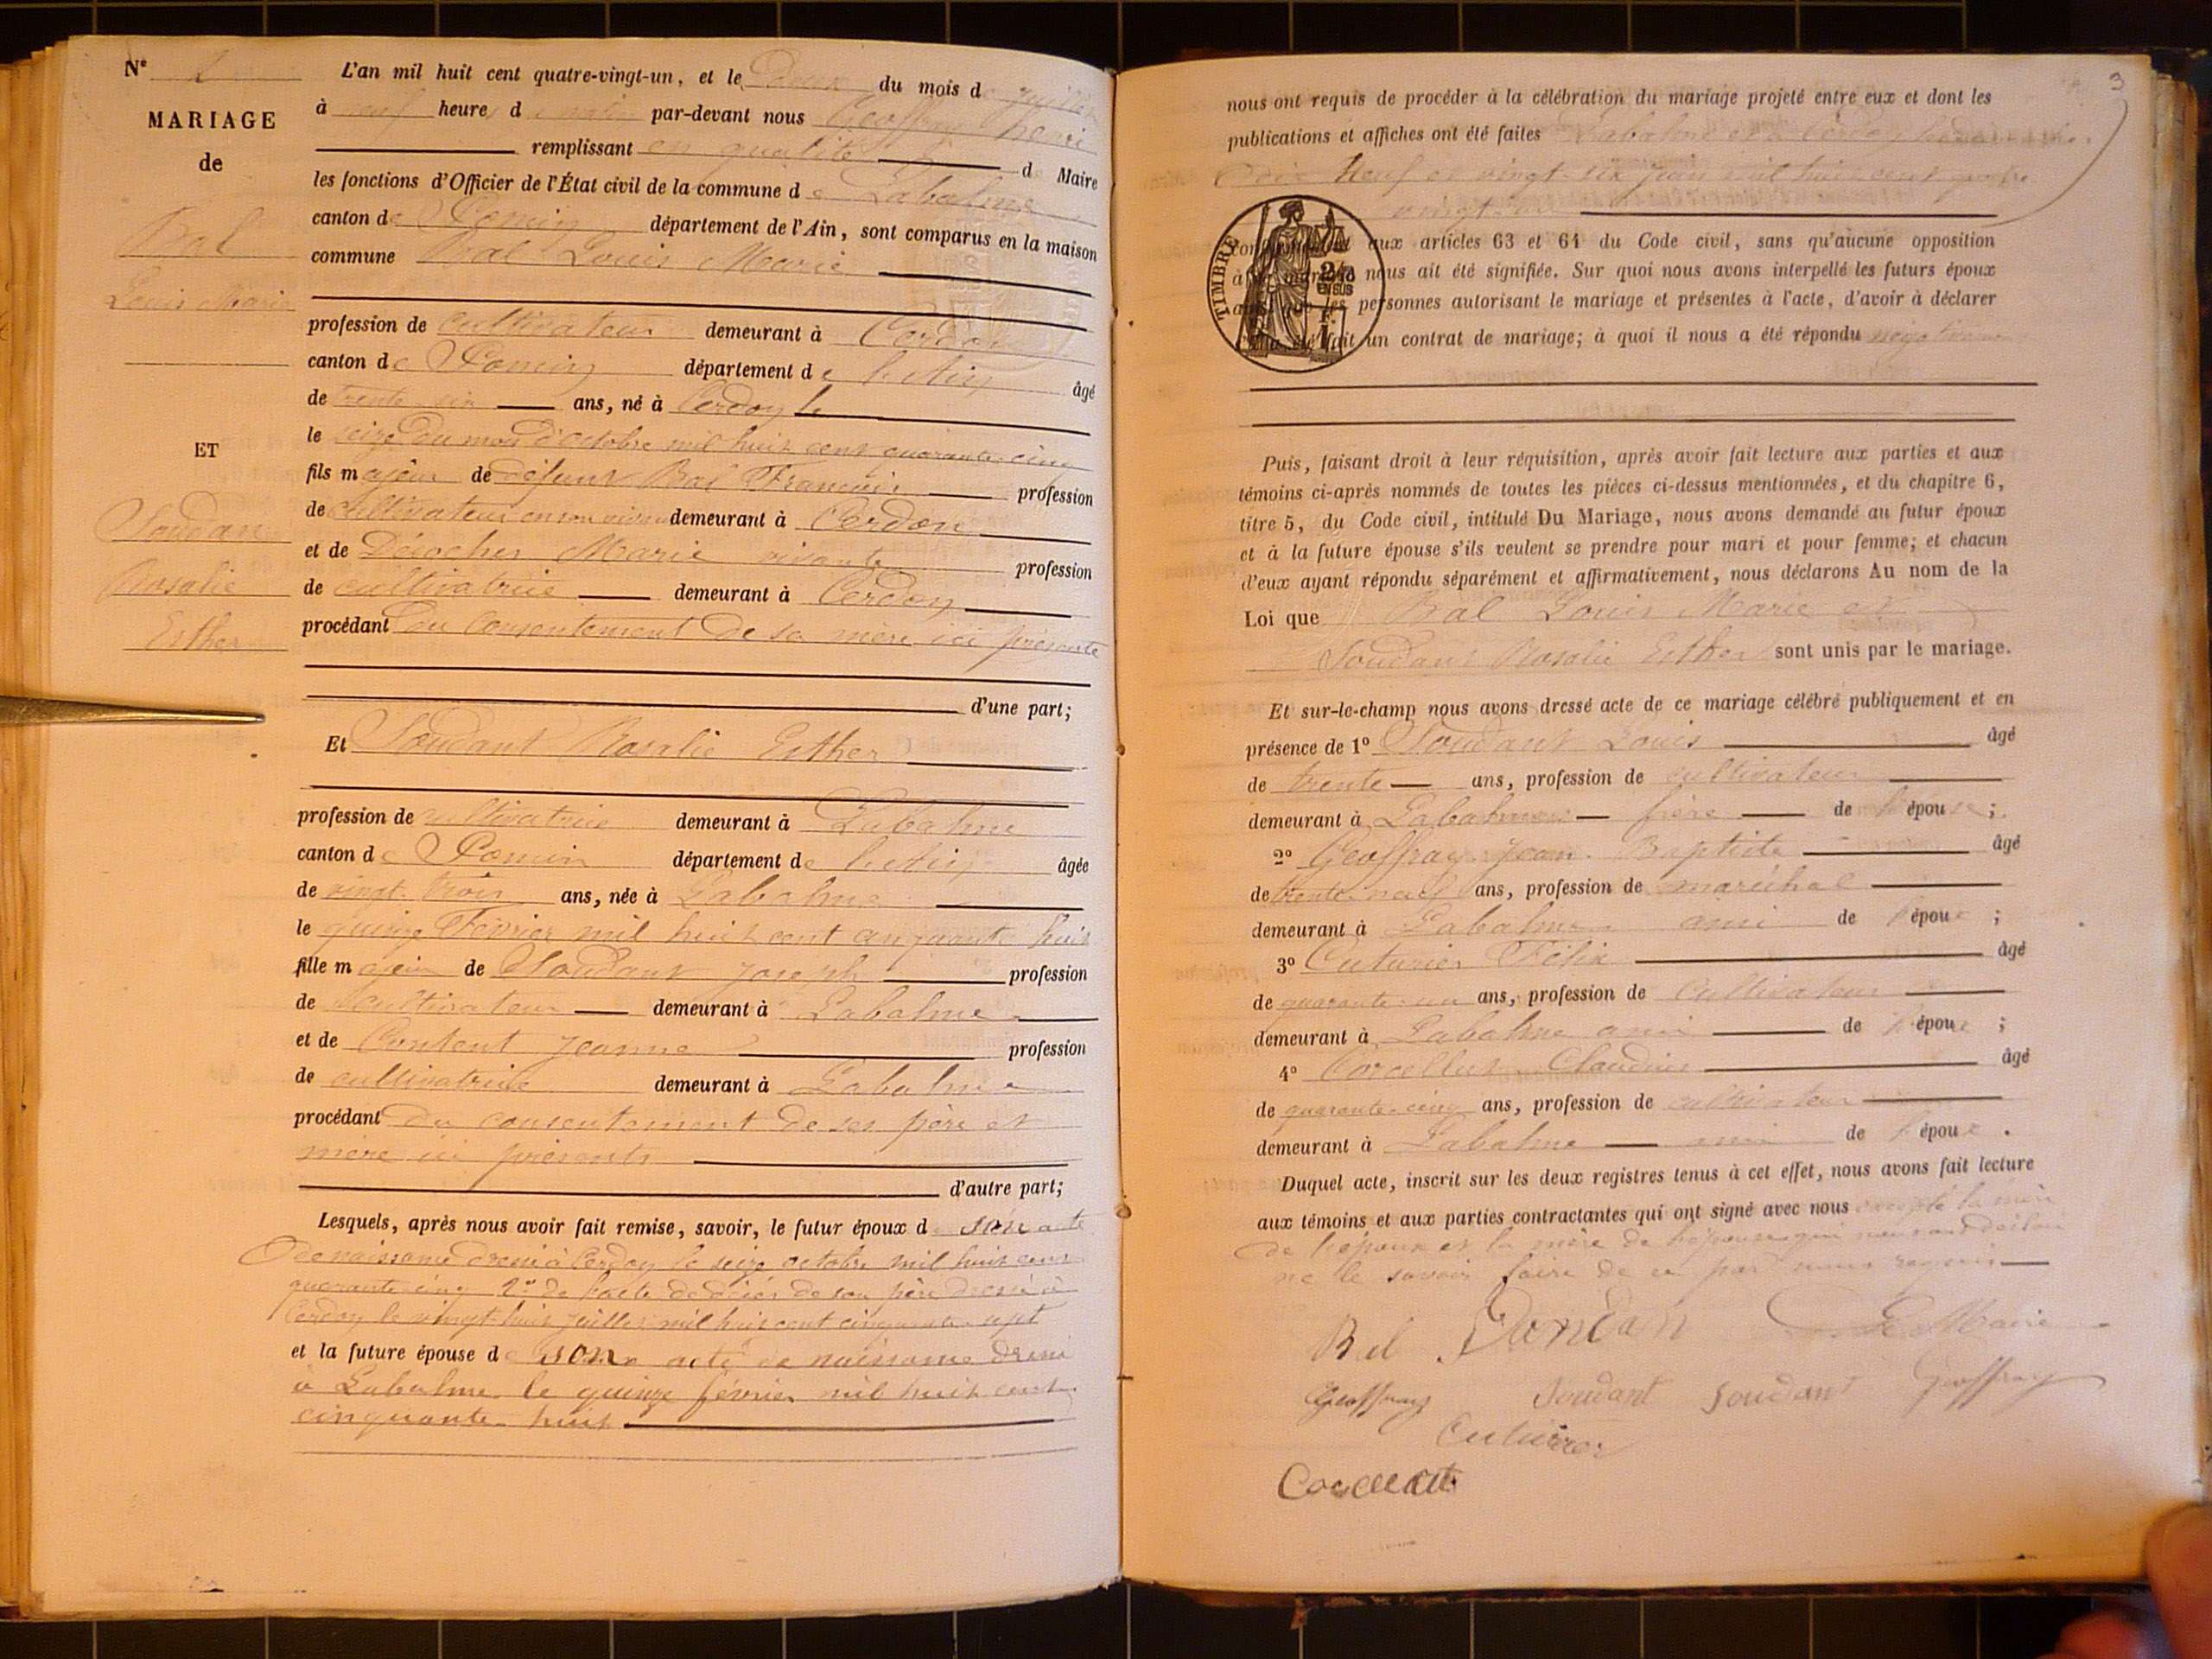 Nº 2
MARIAGE
de
Bal
Louis Marie
ET
Soudan
Rosalie
Esther
L'an mil huit cent quatre-vingt-un, et le Deux du mois de juillet
à neuf heures d matin par-devant nous Geoffray Henri
remplissant en qualité de Maire
les fonctions d'Officier de l'État civil de la commune de Labalme
canton de Poncin département de l'Ain, sont comparus en la maison
commune Bal Louis Marie
profession de cultivateur demeurant à Cerdon
canton de Poncin département de l'Ain âgé
de trente six ans, né à Cerdon le
le seize du mois d'octobre mil huit cent quarante cinq
fils majeur de défunt Bal François profession
de cultivateur en son vivant demeurant à Cerdon
et de Marie vivante profession
de cultivatrice demeurant à Cerdon
procédant du consentement de sa mère ici présente
d'une part;
Et Soudant Rosalie Esther
profession de cultivatrice demeurant à Labalme
canton de Poncin département de l'Ain âgée
de vingt-trois ans, née à Labalme
le quinze Février mil huit cent cinquante huit
fille majeure de Soudant Joseph profession
de cultivateur demeurant à Labalme
et de Content Jeanne profession
de cultivatrice demeurant à Labalme
procédant du consentement de ses père et
mère ici présents
d'autre part;
Lesquels, après nous avoir fait remise, savoir, le futur époux de son acte
de naissance dressé à Cerdon le seize octobre mil huit cent
quarante cinq 2º de l'acte de décès de son père dressé à
Cerdon le vingt-huit juillet mil huit cent cinquante sept
et la future épouse de son acte de naissance dressé
à Labalme le quinze février mil huit cent
cinquante huit
3
nous ont requis de procéder à la célébration du mariage projeté entre eux et dont les
publications et affiches ont été faites Labalme et à Cerdon
dix Neuf et vingt-six juin mil huit cent quatre
vingt un
TIMBRE
Conformément aux articles 63 et 64 du Code civil, sans qu'aucune opposition
à ce mariage nous ait été signifiée. Sur quoi nous avons interpellé les futurs époux
ainsi que les personnes autorisant le mariage et présentes à l'acte, d'avoir à déclarer
s'il a été fait un contrat de mariage; à quoi il nous a été répondu
Puis, faisant droit à leur réquisition, après avoir fait lecture aux parties et aux
témoins ci-après nommés de toutes les pièces ci-dessus mentionnées, et du chapitre 6,
titre 5, du Code civil, intitulé Du Mariage, nous avons demandé au futur époux
et à la future épouse s'ils veulent se prendre pour mari et pour femme; et chacun
d'eux ayant répondu séparément et affirmativement, nous déclarons Au nom de la
Loi que Bal Louis Marie et
Soudant Rosalie Esther sont unis par le mariage.
Et sur-le-champ nous avons dressé acte de ce mariage célébré publiquement et en
présence de 1º Soudant Louis âgé
de trente ans, profession de cultivateur
demeurant à Labalme frère de l'épouse;
2º Geoffray Jean Baptiste âgé
de trente neuf ans, profession de maréchal
demeurant à Labalme ami de l'époux;
3º Cuturier Félix âgé
de quarante un ans, profession de Cultivateur
demeurant à Labalme ami de l'époux;
4º Claudius âgé
de quarante cinq ans, profession de cultivateur
demeurant à Labalme ami de l'époux.
Duquel acte, inscrit sur les deux registres tenus à cet effet, nous avons fait lecture
aux témoins et aux parties contractantes qui ont signé avec nous excepté la mère
de l'époux et la mère de l'épouse qui nous ont déclaré
ne le savoir faire de ce par nous requis
Bal Soudan Le Maire
Geoffray Soudant Soudant Geoffray
Cuturier